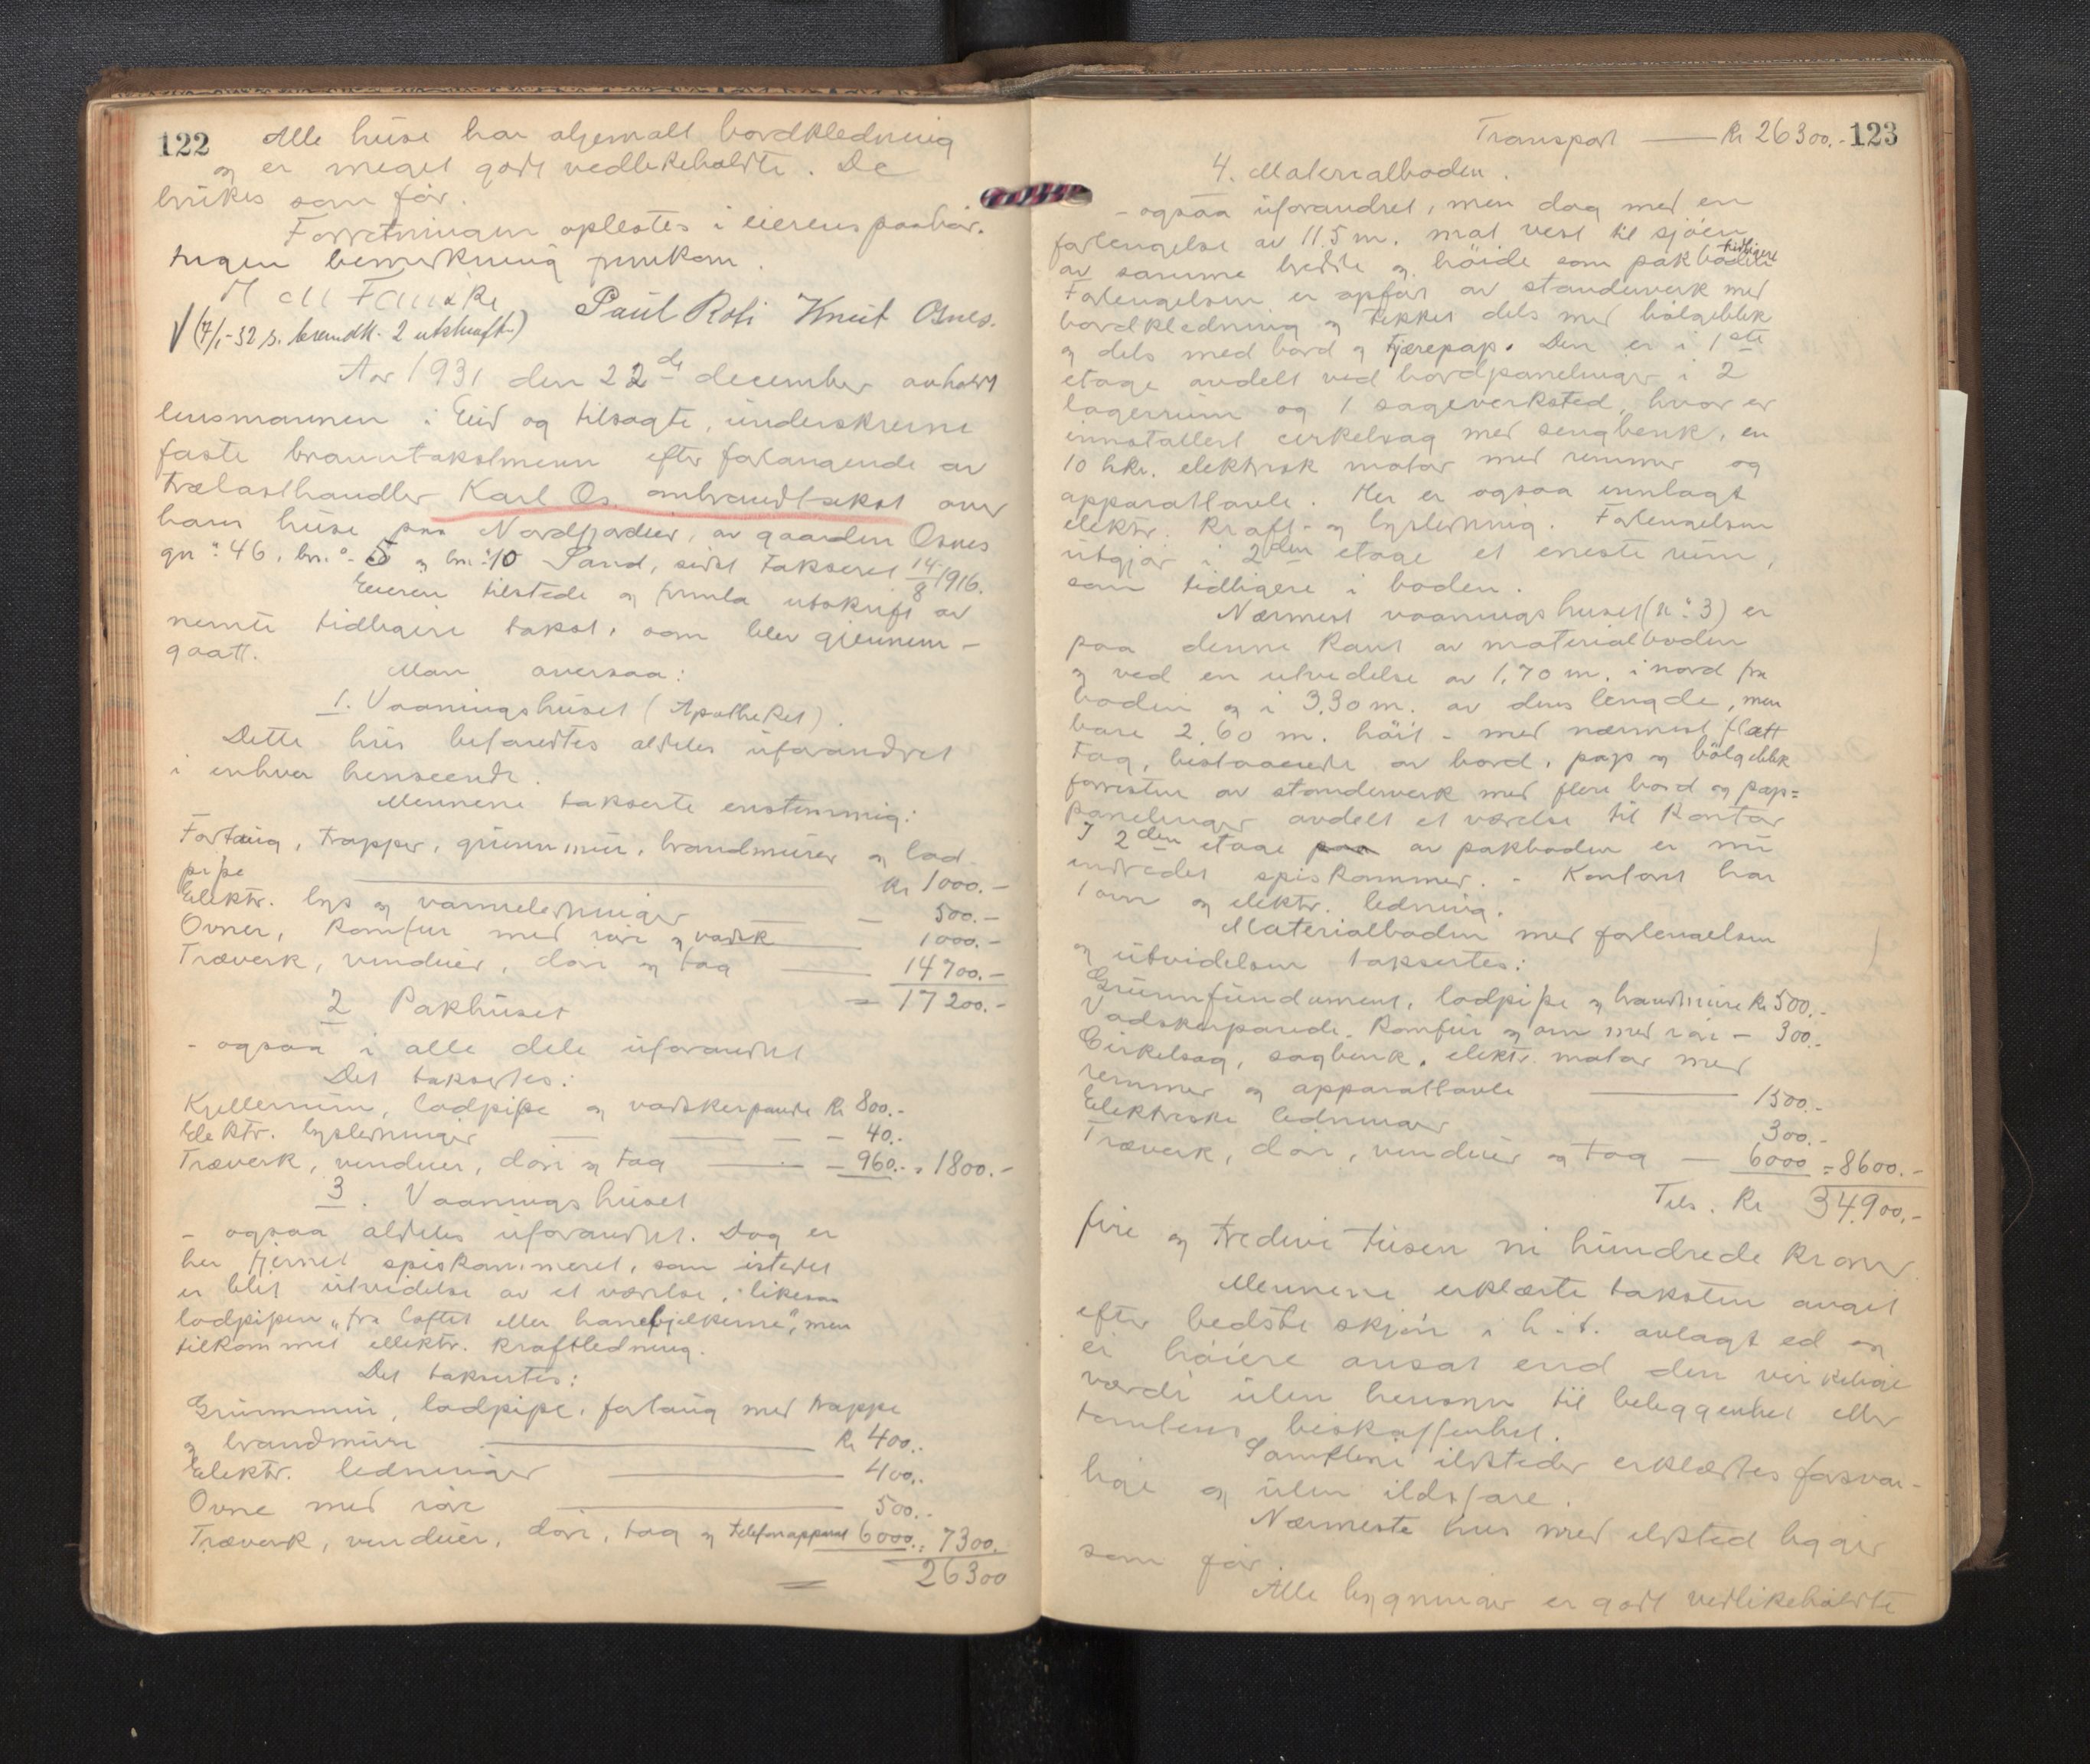 122
Alle huse har oljemalt bordkledning
og er meget godt vedlikeholdte. De
brukes som før.
Forretningen oplestes i eierens paahør.
Ingen bemerkning fremkom.
Paul Roti Knut Osnes.
√ (7/1-32 s. brandk. 2 utskrift.)
Aar 1931 den 22de december avholdt
lensmannen i Eid og tilsagte, underskrevne
faste branntakstmenn efter forlangende av
trælasthandler Karl Os ombrandtakst over
hans huse paa Nordfjordeid, av gaarden Osnes
gn: 46, bn.: 5 og bn: 10 Sand, sidst takseret 14/8 1916.
Eieren tilstede og fremla utskrift av
nemte tidligere takst, som blev gjennem-
gaatt.
Man oversaa:
1. Vaaningshuset (Apotheket).
Dette hus befandtes aldeles uforandret
i enhver henseende.
Mennene takserte enstemmig:
Fortaug, trapper, grunnmur, brandmurer og lod-
pipe Kr 1000.-
Elektr. lys og varmeledninger — - 500.-
Ovner, komfur med rør og vask — 1000.-
Træverk, vinduer, dører og tag — 14700.-
= 17200.-
2 Pakhuset
- ogsaa i alle dele uforandret
Det taksertes:
Kjellermur, lodpipe og vadskerpande Kr 800.-
Elektr. lysledninger — — - - 40.-
Træverk, vinduer, dører og tag — - 960.- = 1800.-
3. Vaaningshuset
- ogsaa aldeles uforandret. Dog er
her fjernet spiskammeret, som istedet
er blit utvidelse av et værelse, likesom
lodpipen "fra loftet eller hanebjelkerne", men
tilkommet ellektr. kraftledning.
Det taksertes:
Grunnmur, lodpipe, fortaug med trappe
og brandmure — Kr 400.-
Elektr. ledninger — 400.-
Ovne med rør — 500.-
Træverk, vinduer, dører, tag og telefonapparat 6000.- = 7300.
= 26300
Transport — Kr 26300.- 123
4. Materialboden.
- ogsaa uforandret, men dog med en
forlengelse av 11.5 m. mot vest til sjøen
av samme bredde og høide som pakboden tidligere
Forlengelsen er opført av stenderverk med
bordkledning og tekket dels med bølgeblik
og dels med bord og tjærepap. Den er i 1ste
etage avdelt ved bordpanelinger i 2
lagerrum og 1 sageverksted, hvor er
innstallert cirkelsag med sengbenk, en
10 hkr. elektrisk motor med remmer og
apparattavle. Her er ogsaa innlagt
elektr. kraft- og lysledning. Forlengelsen
utgjør i 2den etage et eneste rum,
som tidligere i boden.
Nærmest vaaningshuset (n: 3) er
paa denne kant av materialboden
og ved en utvidelse av 1.70 m. i nord fra
boden og i 3.30 m. av dens lengde, men
bare 2.60 m. høit - med nærmest flatt
tag, bestaaende av bord, pap og bølgeblik
forresten av stenderverk med flere bord og pap-
panelinger avdelt et værelse til kontor
I 2den etage paa av pakboden er nu
indredet spiskammer. - Kontoret har
1 ovn og elektr. ledning.
Materialboden med forlengelsen
og utvidelsen taksertes:
Grunnfundament, lodpipe og brandmure Kr 500.-
Vadskerpande, komfur og ovn med rør - 300.-
Cirkelsag, sagbenk, elektr. motor med
remmer og apparattavle — 1500.-
Elektriske ledninger 300.-
Træverk, dører, vinduer og tag — 6000 = 8600.-
Tils. Kr 34.900.-
fire og tredive tusen ni hundrede kroner.
Mennene erklærte taksten avgit
efter bedste skjøn i h.t. avlagt ed og
ei høiere ansat end den virkelige
værdi uten hensyn til beliggenhet eller
tomtens beskaffenhet.
Samtlene ildsteder erklærtes forsvar-
lige og uten ildsfare.
Nærmeste hus med ildsted ligger
som før.
Alle bygninger er godt vedlikeholdte